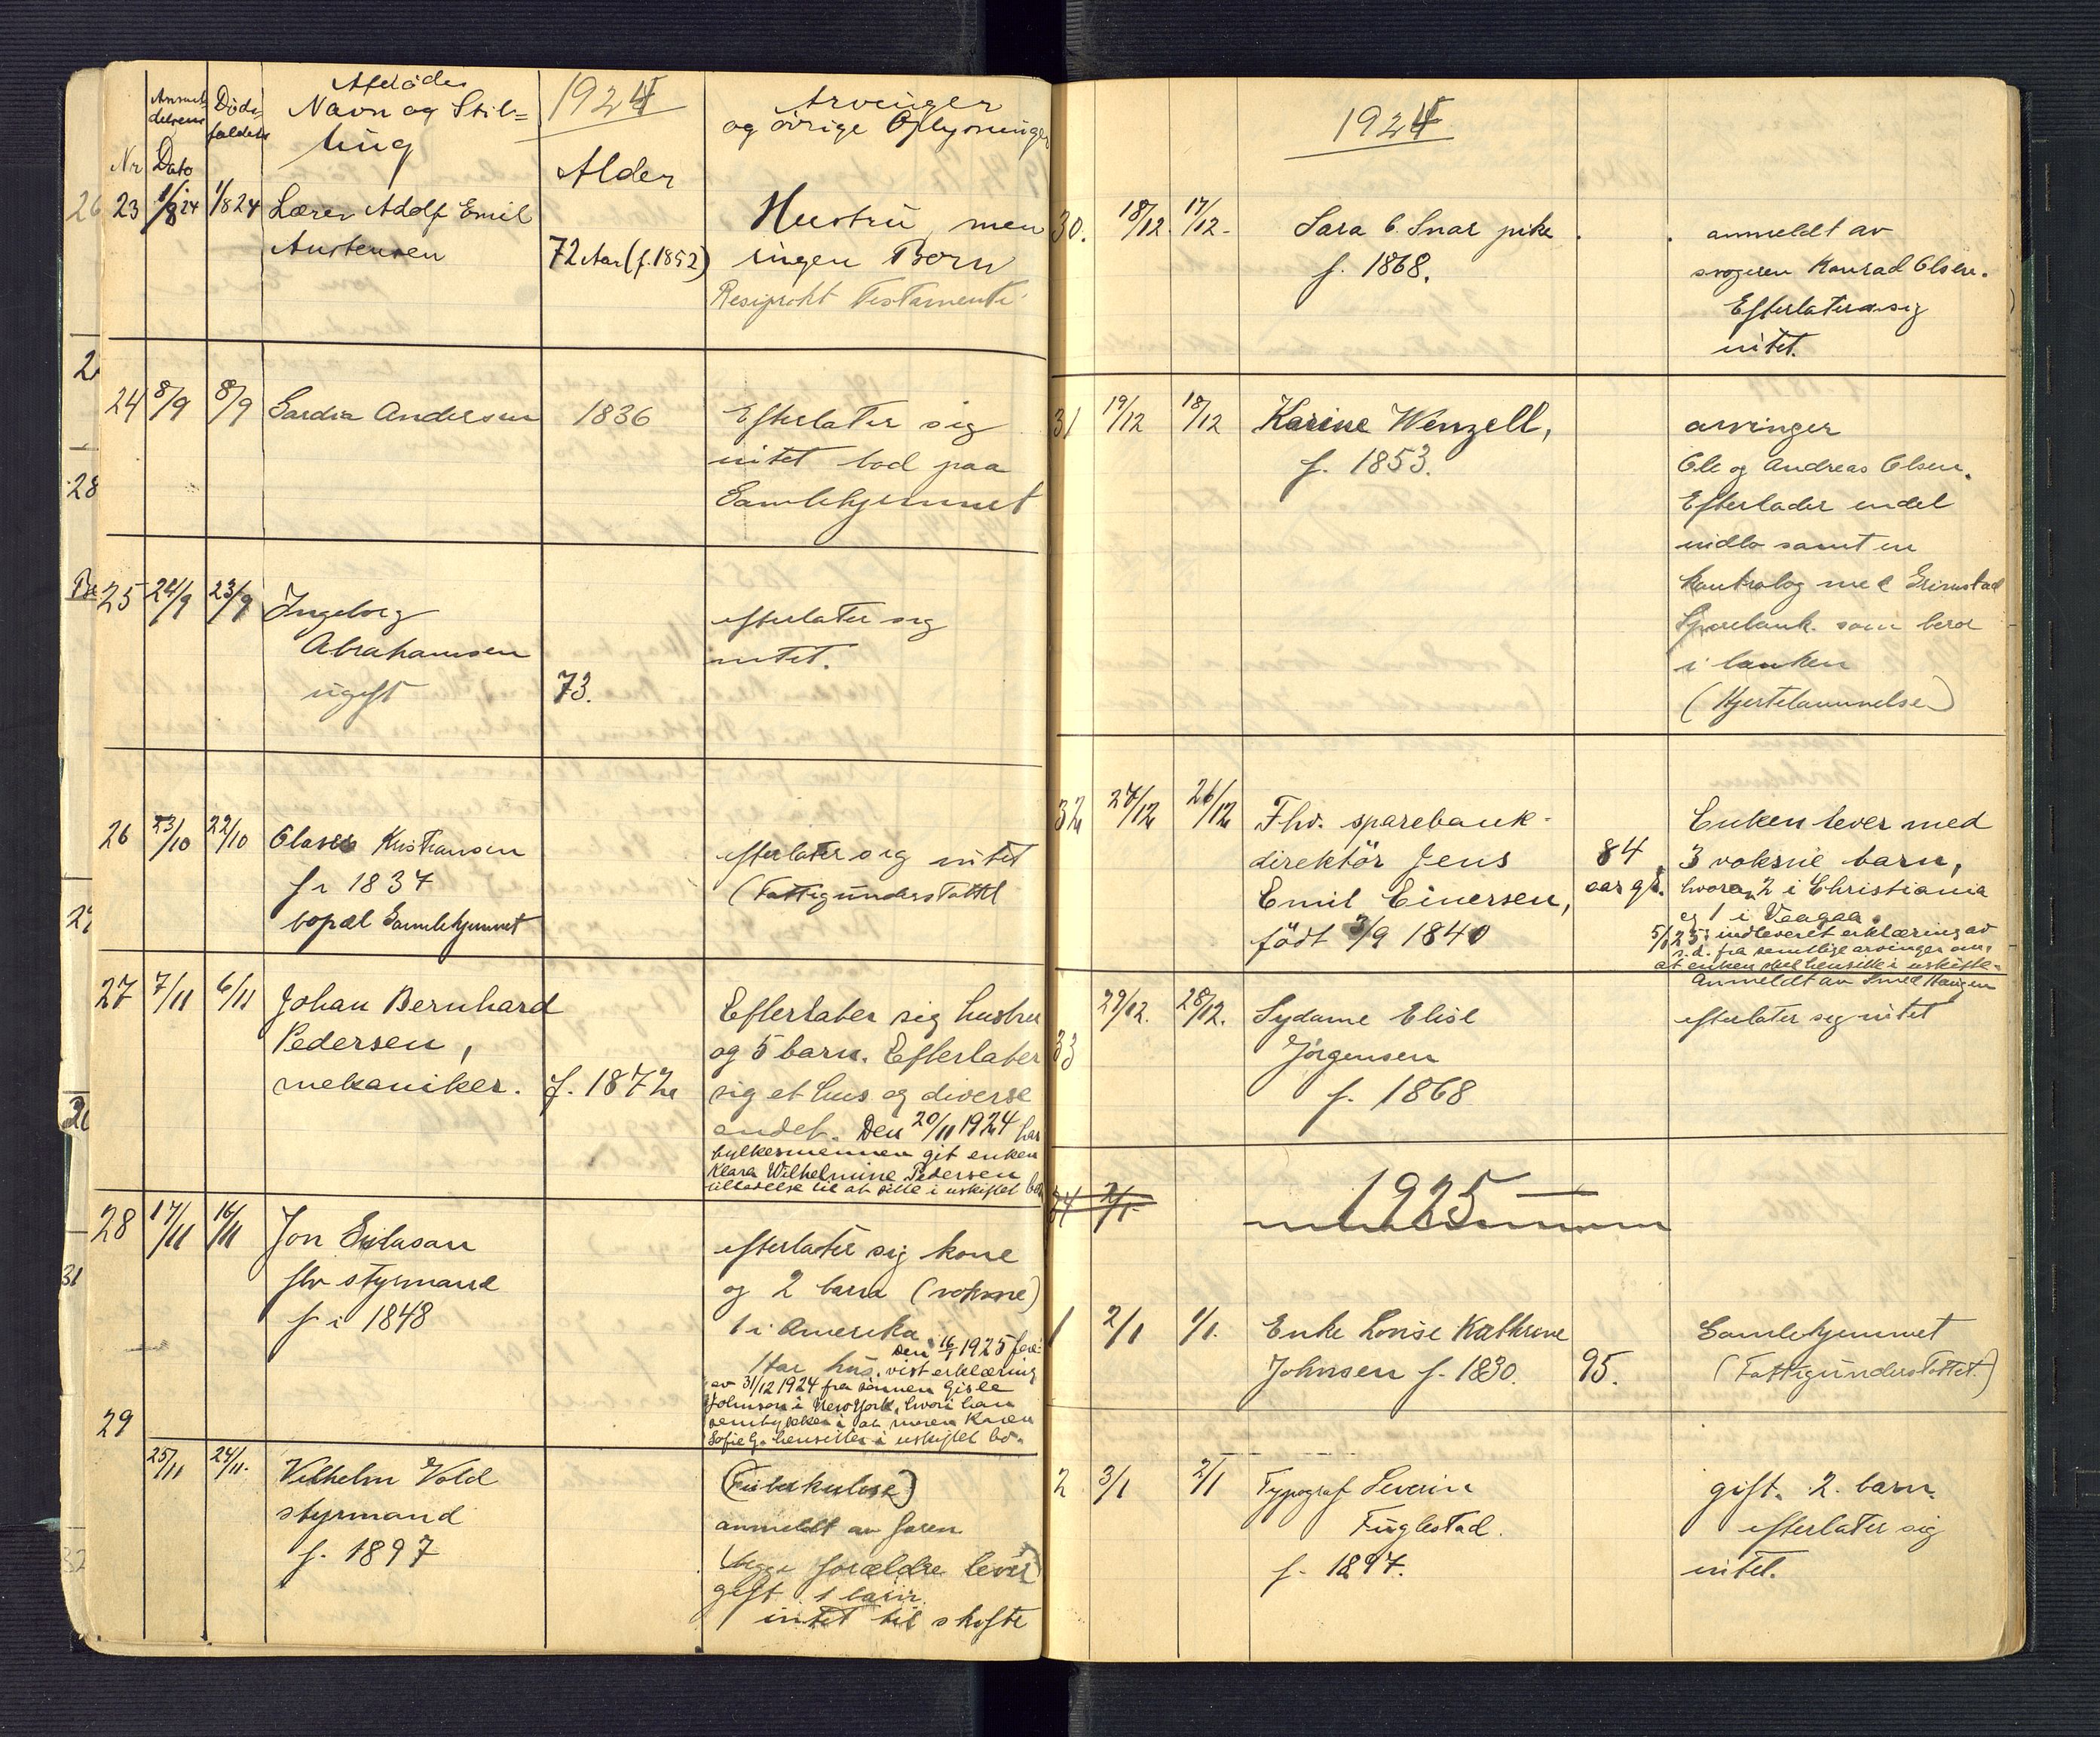 Anmel-
delsens
Dato
Nr
Døds-
faldets
Afdødes
Navn og Stil=
ling
1924
Alder
Arvinger
og øvrige Oplysninger
23 1/8 24 1/8 24 Lærer Adolf Emil
Austensen
72 Aar (f. 1852)
Hustru, men
ingen Børn
Resiprokt Testamente
24 8/9 8/9 Gardia Andersen 1836
Efterlater sig
intet bod paa
Gamlehjemmet
25 24/9 23/9 Ingeborg
Abrahamsen
ugift 73.
efterlater sig
intet.
26 23/10 22/10 Olaves Kristiansen
f i 1837
bopæl Gamlehjemmet
efterlater sig intet
(Fattigunderstøttet
27 7/11 6/11 Johan Bernhard
Pedersen,
mekaniker. f. 1872
Efterlater sig hustru
og 5 barn. Efterlater
sig et hus og diverse
andet. Den 20/11 1924 har
fylkesmannen git enken
Klara Wilhelmine Pedersen
tilladelse til at sitte i uskiftet bo
28 17/11 16/11 Jon Gislason
fhv styrmand
f i 1848
efterlater sig kone
og 2 barn (voksne)
1 i Amerika.
Har hus. Den 16/1 1925 fore-
vist erklæring
av 31/12 1924 fra sønnen Gisle
Johnson i New York, hvori han
samtykker i at moren Karen
Sofie G. hensitter i uskiftet bo.
29
25/11 24/11. Vilhelm Vold
styrmand
f. 1897
(Tuberkulose)
anmeldt av faren
(begge forældre lever)
gift 1 barn.
intet til skifte
26
2
28
31
32
1924
30. 18/12. 17/12. Sara G. Snar pike
f. 1868.
anmeldt av
svogeren Konrad Olsen.
Efterlater sig
intet.
31 19/12 18/12 Karine Wenzell,
f. 1853.
arvinger
Ole og Andreas Olsen.
Efterlader endel
indbo samt en
kontrabog med Grimstad
Sparebank som beror
i banken
(Hjertelammelse)
32 27/12 26/12 Fhv. sparebank-
direktør Jens
Emil Einersen,
født 3/9 1840
84
aar gl.
Enken lever med
3 voksne barn,
hvorav 2 i Christiania
og 1 i Vaagaa.
5/1 25: indleveret erklæring av
s.d. fra samtlige arvinger om,
at enken skal hensitte i uskifte.
33 29/12. 28/12. Sydame Elise
Jørgensen
f. 1868
Anmeldt av Smed Haugen
efterlater sig intet
34 2/1
1925
1 2/1 1/1. Enke Lovise Kathrine
Johnsen f. 1830. 95.
Gamlehjemmet
(Fattigunderstøttet.)
2 3/1 2/1 Typograf Severin
Fuglestad.
f. 1897.
gift. 2. barn.
efterlater sig
intet.